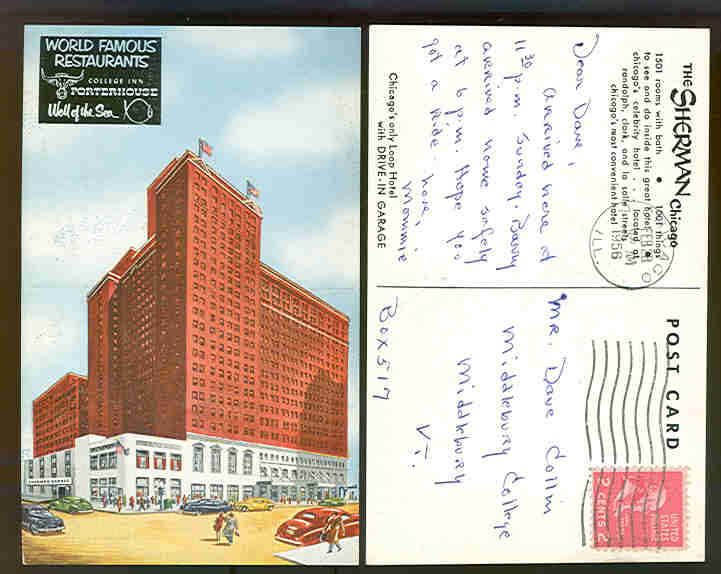 WORLD FAMOUS
RESTAURANTS
COLLEGE INN
PORTERHOUSE
Well of the Sea
SHERMAN GARAGE
THE SHERMAN Chicago
1501 rooms with bath • 1001 things
to see and do inside this great hotel •
chicago's celebrity hotel . . . located at
randolph, clark, and la salle streets •
chicago's most convenient hotel
Dear Dave,
Arrived here at
11:30 p.m. Sunday. Barry
arrived home safely
at 6 p.m. Hope you
got a ride. Love,
Mommie
Chicago's only Loop Hotel
with DRIVE-IN GARAGE
CHICAGO
FEB
1956
ILL.
POST CARD
UNITED
STATES
POSTAGE
2 CENTS 2
Mr. Dave Collin
Middlebury College
Middlebury
Vt.
Box 517